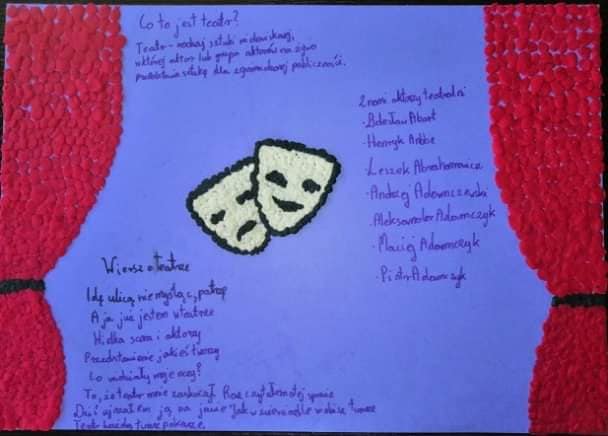 Co to jest teatr?
Teatr - rodzaj sztuki widowiskowej,
w której aktor lub grupa aktorów na żywo
przedstawia sztukę dla zgromadzonej publiczności.
Znani aktorzy teatralni
- Bolesław Abart
- Henryk Abbe
- Leszek Abrahamowicz
- Andrzej Adamczewski
- Aleksander Adamczyk
- Maciej Adamczyk
- Piotr Adamczyk
Wiersz o teatrze
Idę ulicą nie myśląc, patrzę
A ja już jestem w teatrze
Wielka scena i aktorzy
Przedstawienie jakieś tworzy
Co widziały moje oczy?
To, że teatr mnie zaskoczył. Raz czytałem o tej
Dziś ujrzałem ją na jawie Jak w
Teatr każdą twarz pokaże.